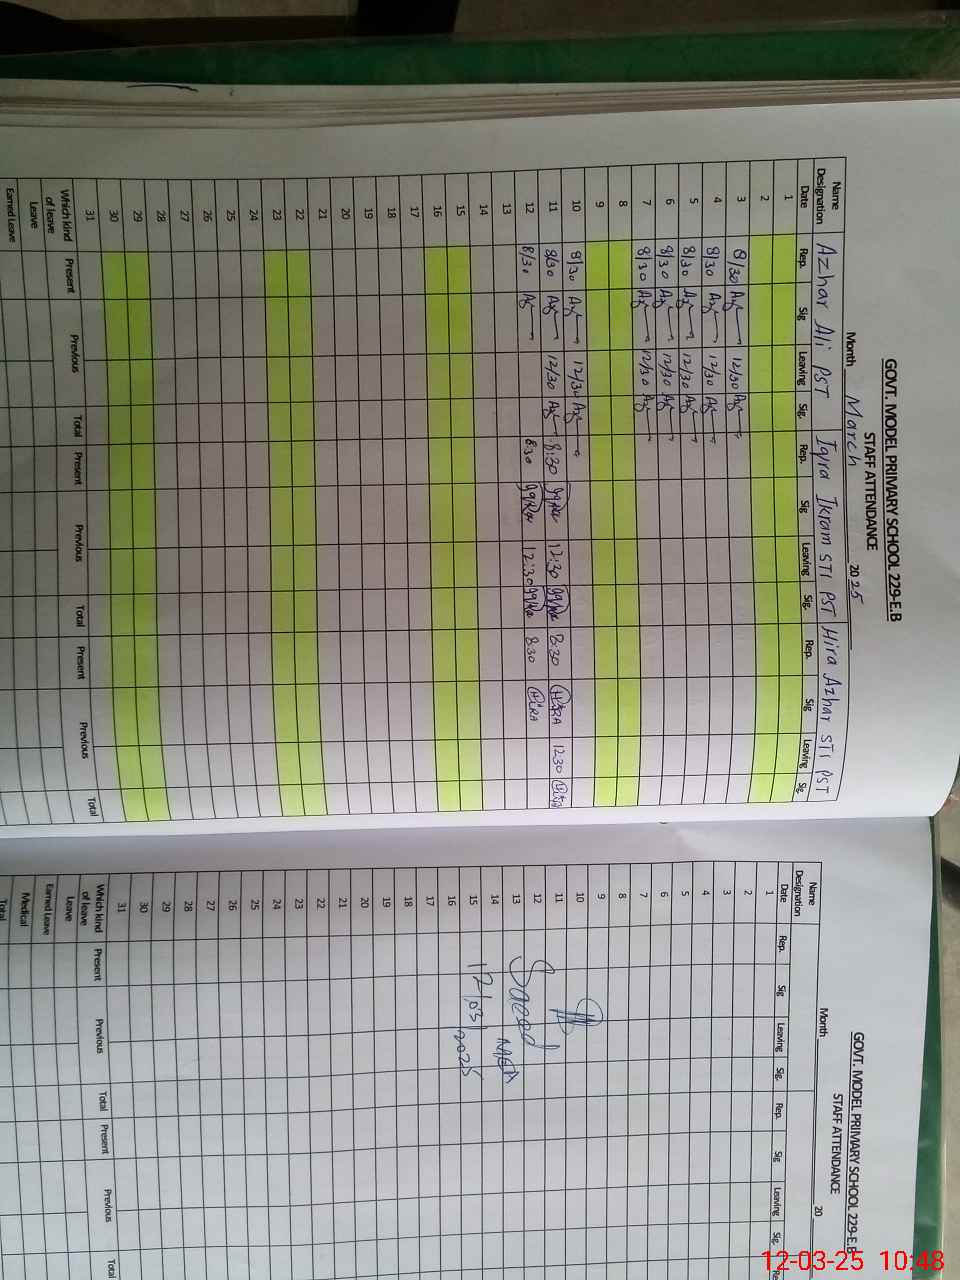 GOVT. MODEL PRIMARY SCHOOL 229-E.B
STAFF ATTENDANCE
Month March 2025
Name Designation Azhar Ali PST Iqra Ikram STI PST Hira Azhar STI PST
Date Rep. Sig Leaving Sig. Rep. Sig Leaving Sig. Rep. Sig Leaving Sig.
1
2
3 8/30 12/30
4 8/30 12/30
5 8/30 12/30
6 8/30 12/30
7 8/30 12/30
8
9
10 8/30 12/30
11 8/30 12/30 8:30 12:30 8:30 HIRA 12:30
12 8/30 8:30 12:30 8:30 HIRA
13
14
15
16
17
18
19
20
21
22
23
24
25
26
27
28
29
30
31
Which kind of leave Present Previous Total Present Previous Total Present Previous Total
Leave
Earned Leave
GOVT. MODEL PRIMARY SCHOOL 229-E.B
STAFF ATTENDANCE
Month 20
Name
Designation
Date Rep. Sig Leaving Sig. Rep. Sig Leaving Sig. Re
1
2
3
4
5
6
7
8
9
10
11
12
13
14
15
16
17
18
19
20
21
22
23
24
25
26
27
28
29
30
31
Saeed
MEA
12/03/2025
Which kind of leave Present Previous Total Present Previous Total
Leave
Earned Leave
Medical
Total
12-03-25 10:48